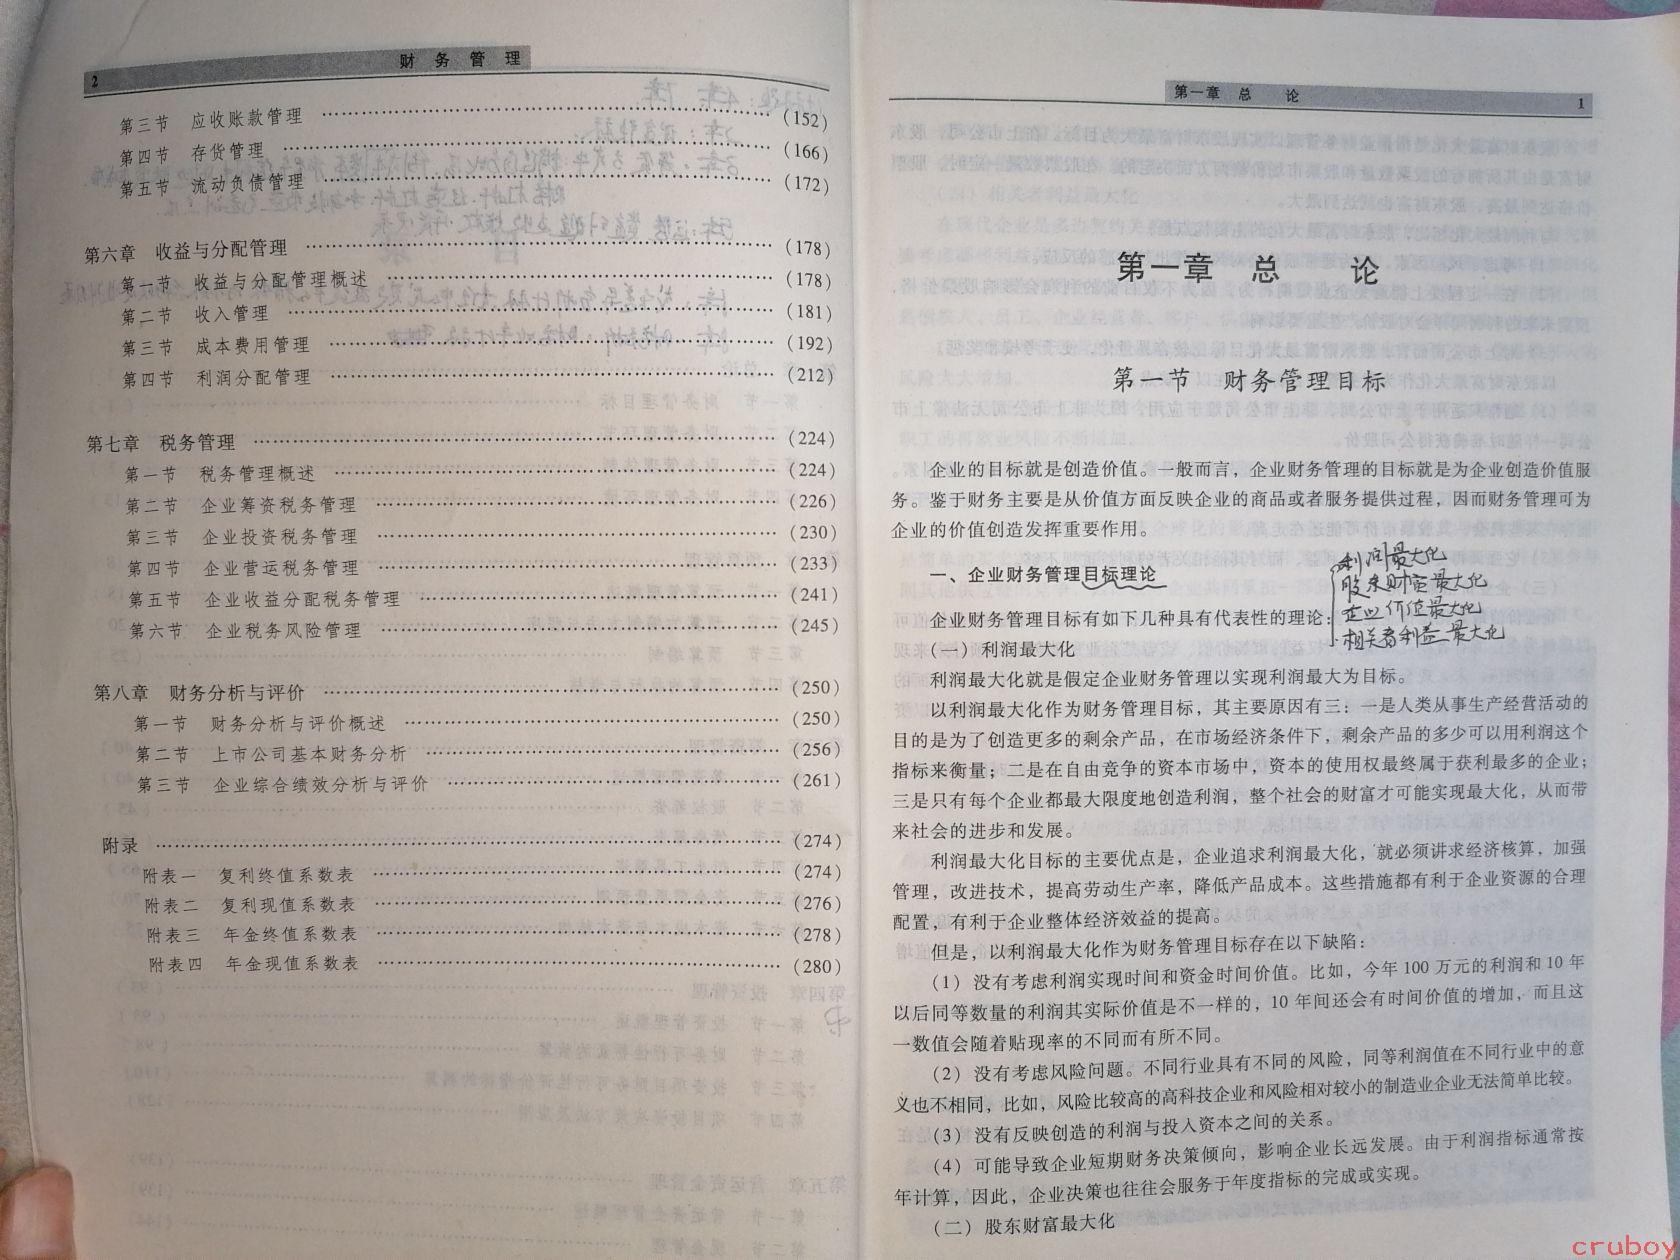 2
财 务 管 理
第三节 应收账款管理 ………… (152)
第四节 存货管理 ………… (166)
第五节 流动负债管理 ………… (172)
第六章 收益与分配管理 ………… (178)
第一节 收益与分配管理概述 ………… (178)
第二节 收入管理 ………… (181)
第三节 成本费用管理 ………… (192)
第四节 利润分配管理 ………… (212)
第七章 税务管理 ………… (224)
第一节 税务管理概述 ………… (224)
第二节 企业筹资税务管理 ………… (226)
第三节 企业投资税务管理 ………… (230)
第四节 企业营运税务管理 ………… (233)
第五节 企业收益分配税务管理 ………… (241)
第六节 企业税务风险管理 ………… (245)
第八章 财务分析与评价 ………… (250)
第一节 财务分析与评价概述 ………… (250)
第二节 上市公司基本财务分析 ………… (256)
第三节 企业综合绩效分析与评价 ………… (261)
附录 ………… (274)
附表一 复利终值系数表 ………… (274)
附表二 复利现值系数表 ………… (276)
附表三 年金终值系数表 ………… (278)
附表四 年金现值系数表 ………… (280)
第一章 总 论
1
第一章 总 论
第一节 财务管理目标
企业的目标就是创造价值。一般而言，企业财务管理的目标就是为企业创造价值服
务。鉴于财务主要是从价值方面反映企业的商品或者服务提供过程，因而财务管理可为
企业的价值创造发挥重要作用。
一、企业财务管理目标理论
企业财务管理目标有如下几种具有代表性的理论：
利润最大化
股东财富最大化
企业价值最大化
相关者利益最大化
（一）利润最大化
利润最大化就是假定企业财务管理以实现利润最大为目标。
以利润最大化作为财务管理目标，其主要原因有三：一是人类从事生产经营活动的
目的是为了创造更多的剩余产品，在市场经济条件下，剩余产品的多少可以用利润这个
指标来衡量；二是在自由竞争的资本市场中，资本的使用权最终属于获利最多的企业；
三是只有每个企业都最大限度地创造利润，整个社会的财富才可能实现最大化，从而带
来社会的进步和发展。
利润最大化目标的主要优点是，企业追求利润最大化，就必须讲求经济核算，加强
管理，改进技术，提高劳动生产率，降低产品成本。这些措施都有利于企业资源的合理
配置，有利于企业整体经济效益的提高。
但是，以利润最大化作为财务管理目标存在以下缺陷：
（1）没有考虑利润实现时间和资金时间价值。比如，今年 100 万元的利润和 10 年
以后同等数量的利润其实际价值是不一样的，10 年间还会有时间价值的增加，而且这
一数值会随着贴现率的不同而有所不同。
（2）没有考虑风险问题。不同行业具有不同的风险，同等利润值在不同行业中的意
义也不相同，比如，风险比较高的高科技企业和风险相对较小的制造业企业无法简单比较。
（3）没有反映创造的利润与投入资本之间的关系。
（4）可能导致企业短期财务决策倾向，影响企业长远发展。由于利润指标通常按
年计算，因此，企业决策也往往会服务于年度指标的完成或实现。
（二）股东财富最大化
cruboy